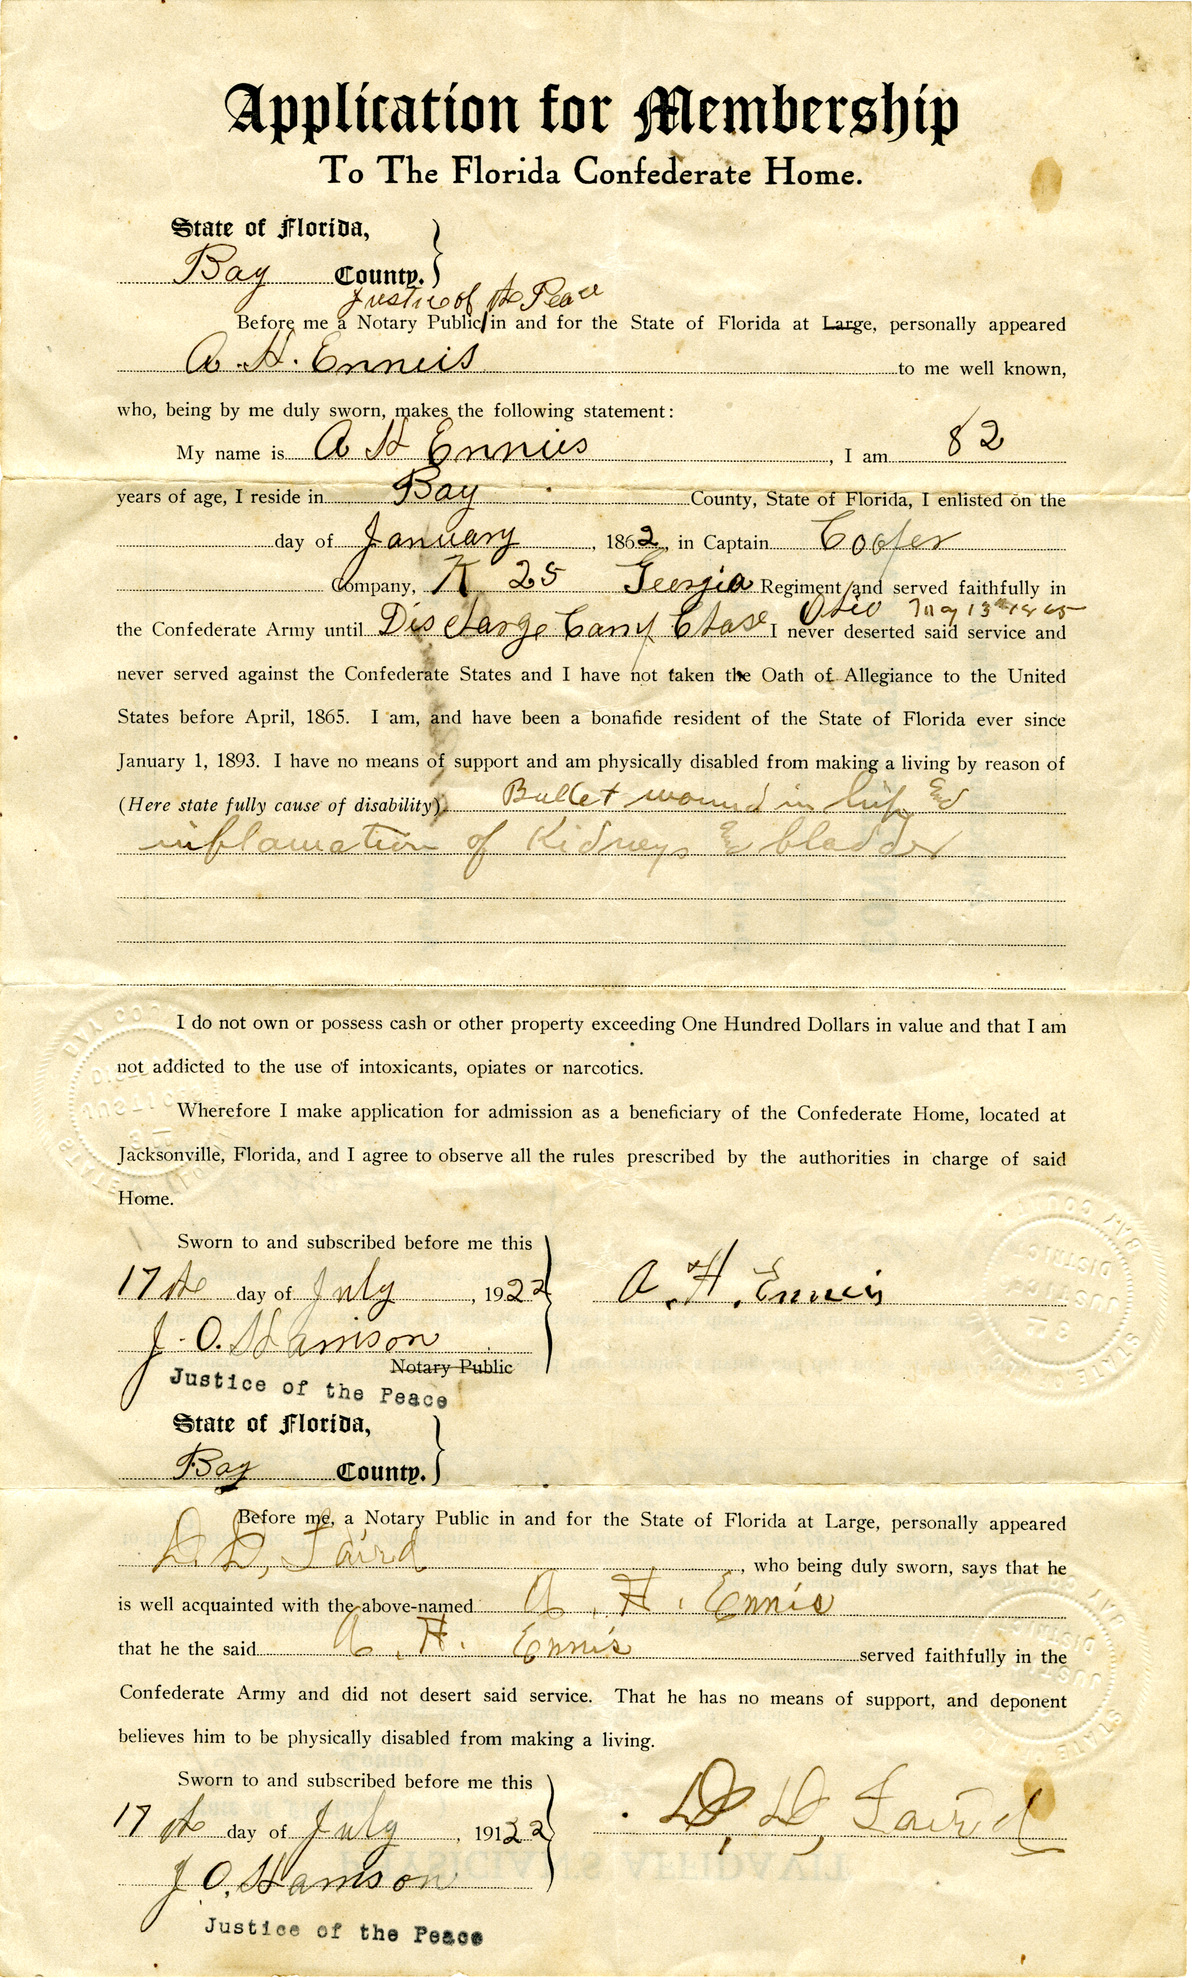 Application for Membership
To The Florida Confederate Home.
State of Florida,
Bay County.
Justice of the Peace
Before me a Notary Public/in and for the State of Florida at Large, personally appeared
A. H. Enneis to me well known,
who, being by me duly sworn, makes the following statement:
My name is A H Ennies, I am 82
years of age, I reside in Bay County, State of Florida, I enlisted on the
day of January, 1862, in Captain Cooper
Company, K 25 Georgia Regiment and served faithfully in
Ohio May 13th 1865
the Confederate Army until Discharge Camp Chase I never deserted said service and
never served against the Confederate States and I have not taken the Oath of Allegiance to the United
States before April, 1865. I am, and have been a bonafide resident of the State of Florida ever since
January 1, 1893. I have no means of support and am physically disabled from making a living by reason of
(Here state fully cause of disability) Bullet wound in hip and
inflamation of Kidneys and bladder
I do not own or possess cash or other property exceeding One Hundred Dollars in value and that I am
not addicted to the use of intoxicants, opiates or narcotics.
Wherefore I make application for admission as a beneficiary of the Confederate Home, located at
Jacksonville, Florida, and I agree to observe all the rules prescribed by the authorities in charge of said
Home.
Sworn to and subscribed before me this
17th day of July, 1922
A. H. Ennis
J. O. Harrison
Notary Public
Justice of the Peace
State of Florida,
Bay County.
Before me, a Notary Public in and for the State of Florida at Large, personally appeared
D. D, Faird, who being duly sworn, says that he
is well acquainted with the above-named A. H. Ennis
that he the said A. H. Ennis served faithfully in the
Confederate Army and did not desert said service. That he has no means of support, and deponent
believes him to be physically disabled from making a living.
Sworn to and subscribed before me this
17th day of July, 1922
D, D, Faird
J O. Harrison
Justice of the Peace